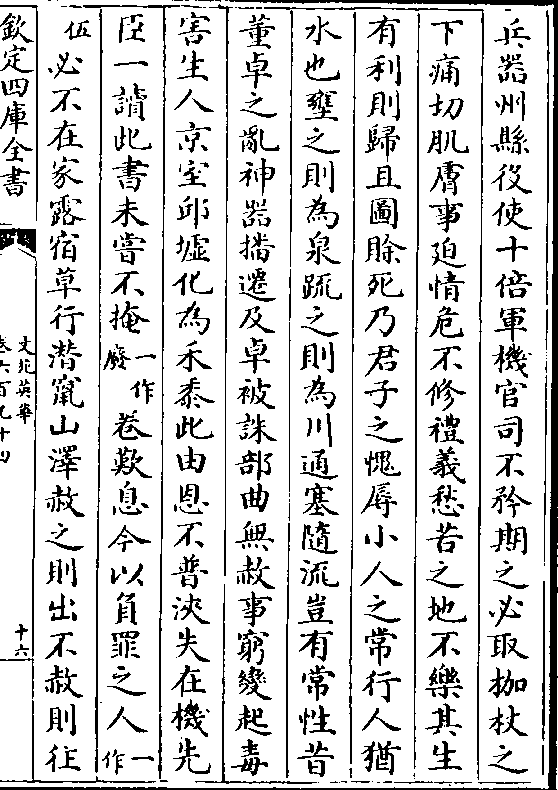 兵器州縣役使十倍軍機官司不矜期之必取枷杖之
下痛切肌膚事迫情危不修禮義愁苦之地不樂其生
有利則歸且圖賒死乃君子之愧辱小人之常行人猶
水也壅之則為泉疏之則為川通塞隨流豈有常性昔
董卓之亂神器播遷及卓被誅部曲無赦事窮變起毒
害生人京室邱墟化為禾黍此由恩不普浹失在機先
臣一讀此書未嘗不掩一作廢卷歎息今以負罪之人一作
伍必不在家露宿草行潛竄山澤赦之則出不赦則往
欽定四庫全書
文苑英華
卷六百九十四
十六